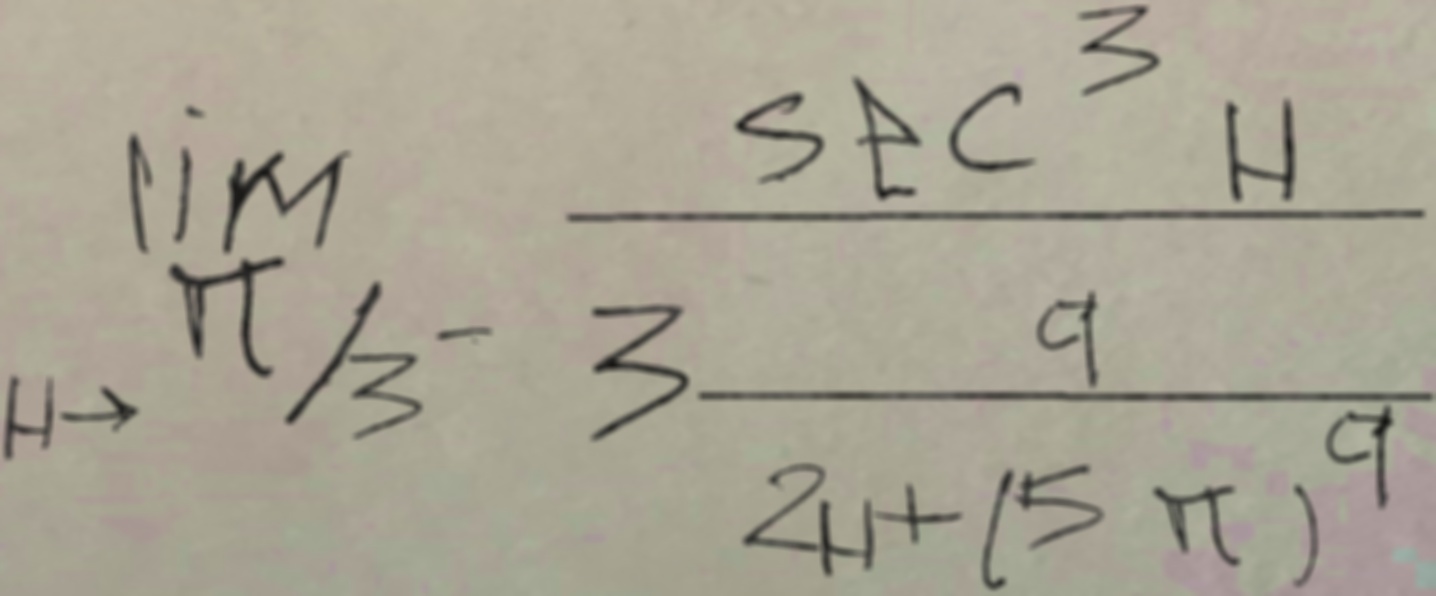 \lim_{H \to \pi/3^-} \frac{\sec^3 H}{3 \frac{9}{2H + (5\pi)^9}}